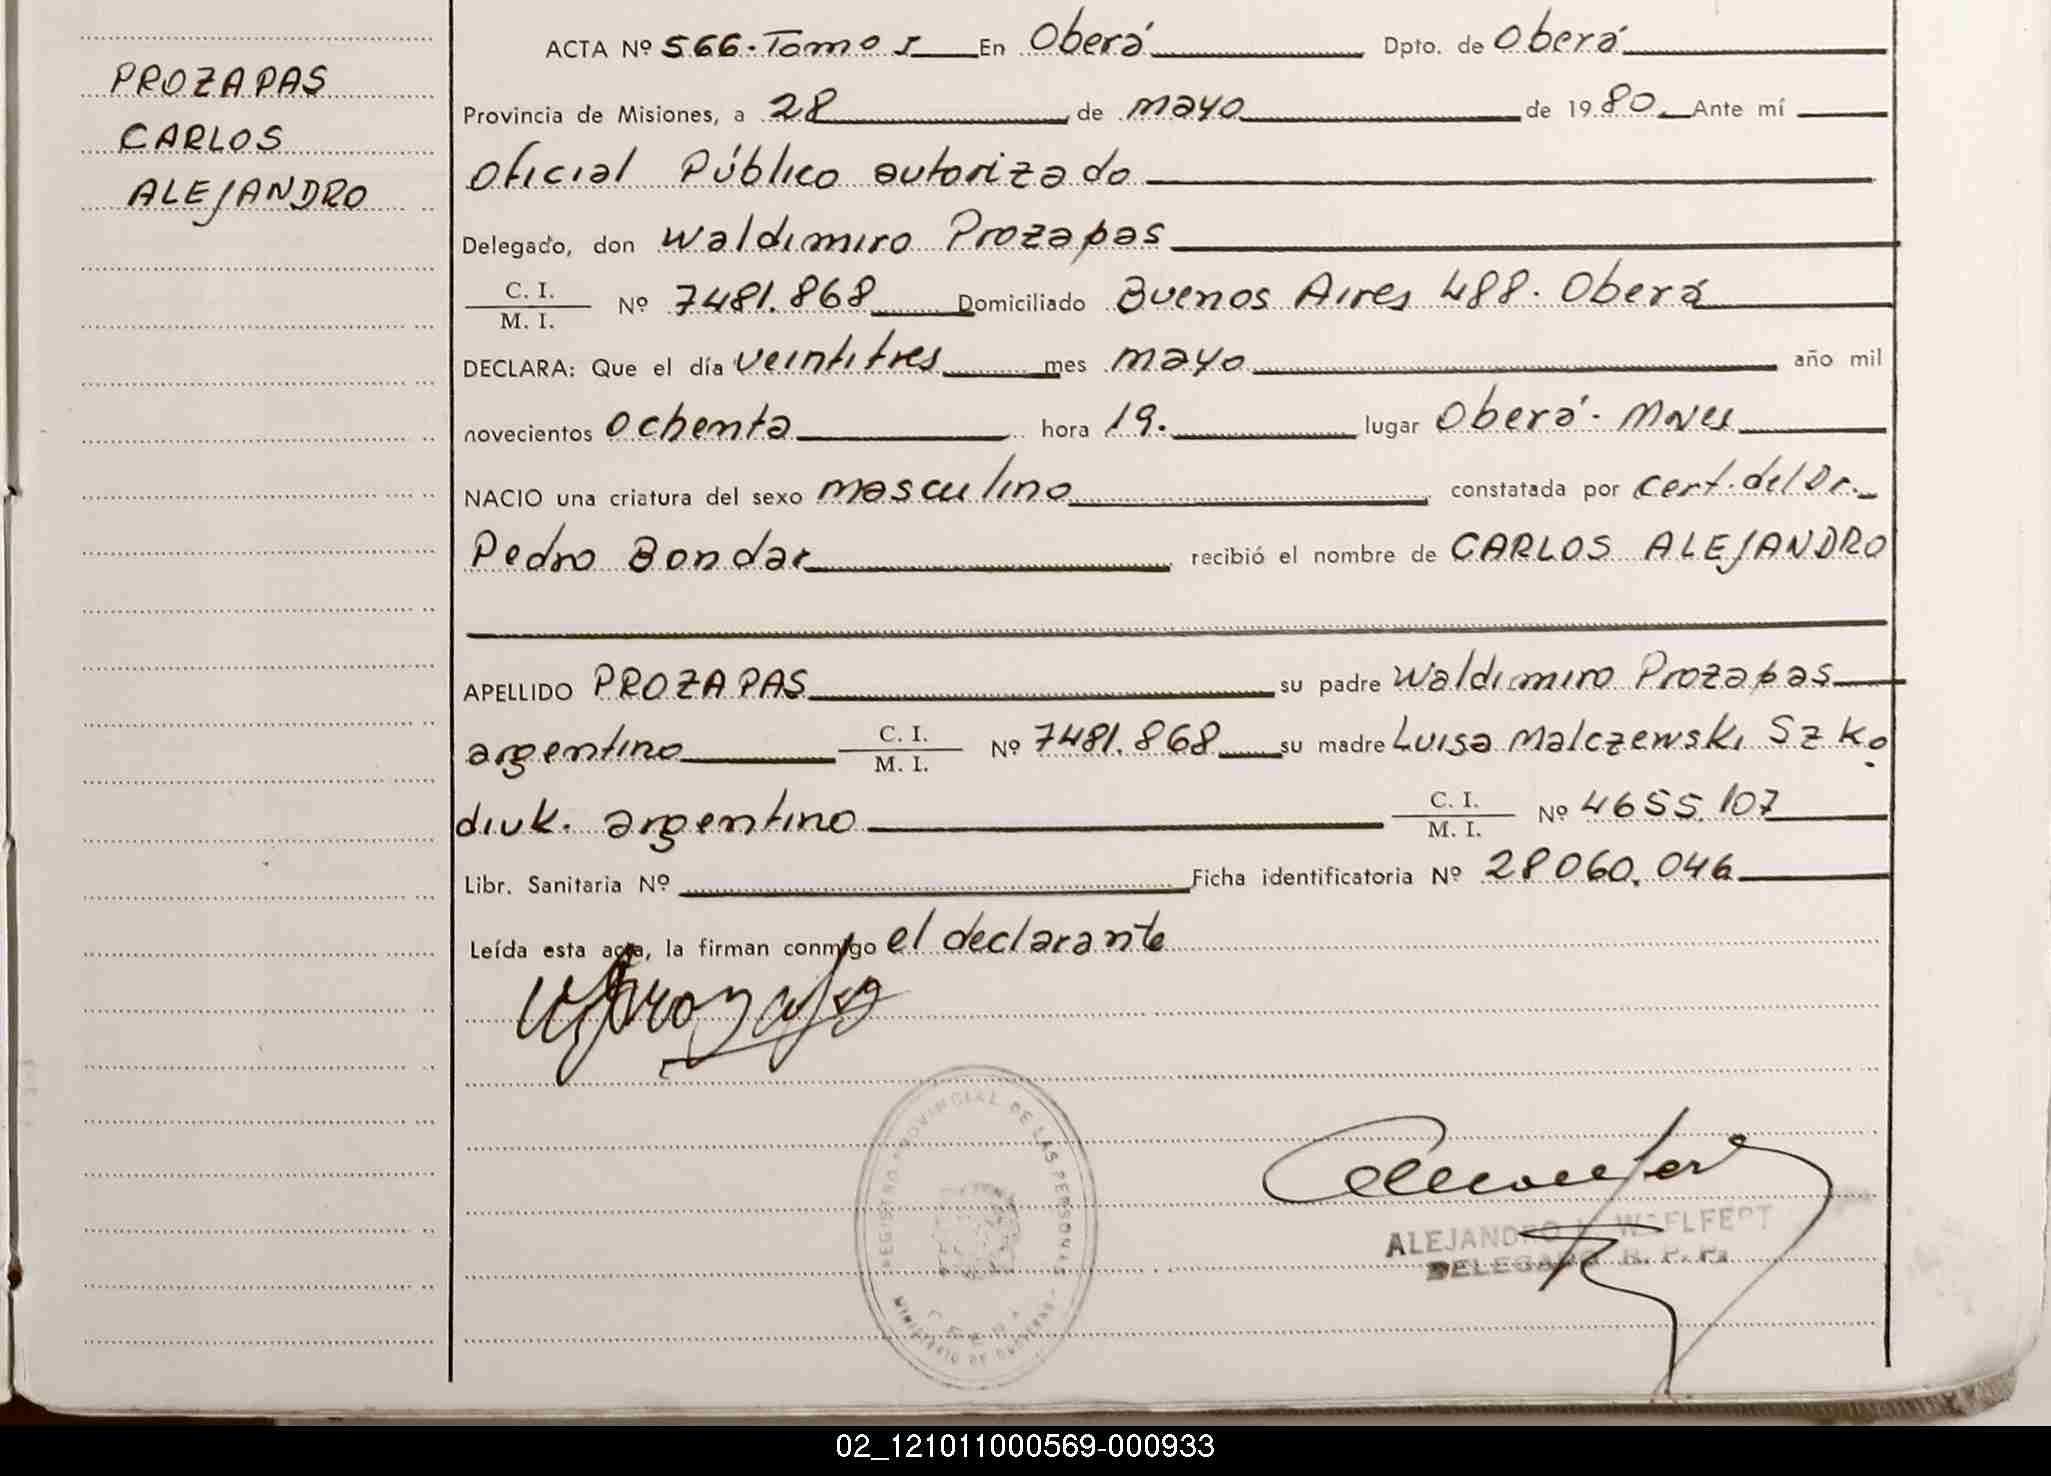 PROZAPAS
CARLOS
ALEJANDRO
ACTA Nº 566. Tomo I En Oberá Dpto. de Oberá
Provincia de Misiones, a 28 de mayo de 1980. Ante mí
Oficial Público autorizado
Delegado, don Waldimiro Prozapas
C. I.
M. I. Nº 7481.868 Domiciliado Buenos Aires 488. Oberá
DECLARA: Que el día veintitres mes mayo año mil
novecientos ochenta hora 19. lugar Oberá. Mnes
NACIO una criatura del sexo masculino constatada por cert. del Dr.
Pedro Bondar recibió el nombre de CARLOS ALEJANDRO
APELLIDO PROZAPAS su padre Waldimiro Prozapas
argentino C. I.
M. I. Nº 7481.868 su madre Luisa Malczewski Szko
diuk. argentino C. I.
M. I. Nº 4655.107
Libr. Sanitaria Nº Ficha identificatoria Nº 28060.046
Leída esta acta, la firman conmigo el declarante
REGISTRO PROVINCIAL DE LAS PERSONAS
MINISTERIO DE GOBIERNO
ALEJANDRO WOELFERT
DELEGADO R. P. P.
02_121011000569-000933